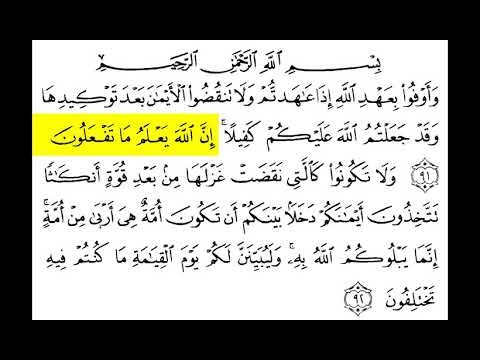 بِسْمِ اللَّهِ الرَّحْمَٰنِ الرَّحِيمِ
وَأَوْفُوا۟ بِعَهْدِ اللَّهِ إِذَا عَٰهَدتُّمْ وَلَا تَنقُضُوا۟ الْأَيْمَٰنَ بَعْدَ تَوْكِيدِهَا
وَقَدْ جَعَلْتُمُ اللَّهَ عَلَيْكُمْ كَفِيلًا ۚ إِنَّ اللَّهَ يَعْلَمُ مَا تَفْعَلُونَ
﴿٩١﴾ وَلَا تَكُونُوا۟ كَالَّتِى نَقَضَتْ غَزْلَهَا مِنۢ بَعْدِ قُوَّةٍ أَنكَٰثًا
تَتَّخِذُونَ أَيْمَٰنَكُمْ دَخَلًۢا بَيْنَكُمْ أَن تَكُونَ أُمَّةٌ هِىَ أَرْبَىٰ مِنْ أُمَّةٍ ۚ
إِنَّمَا يَبْلُوكُمُ اللَّهُ بِهِۦ ۚ وَلَيُبَيِّنَنَّ لَكُمْ يَوْمَ الْقِيَٰمَةِ مَا كُنتُمْ فِيهِ
تَخْتَلِفُونَ ﴿٩٢﴾